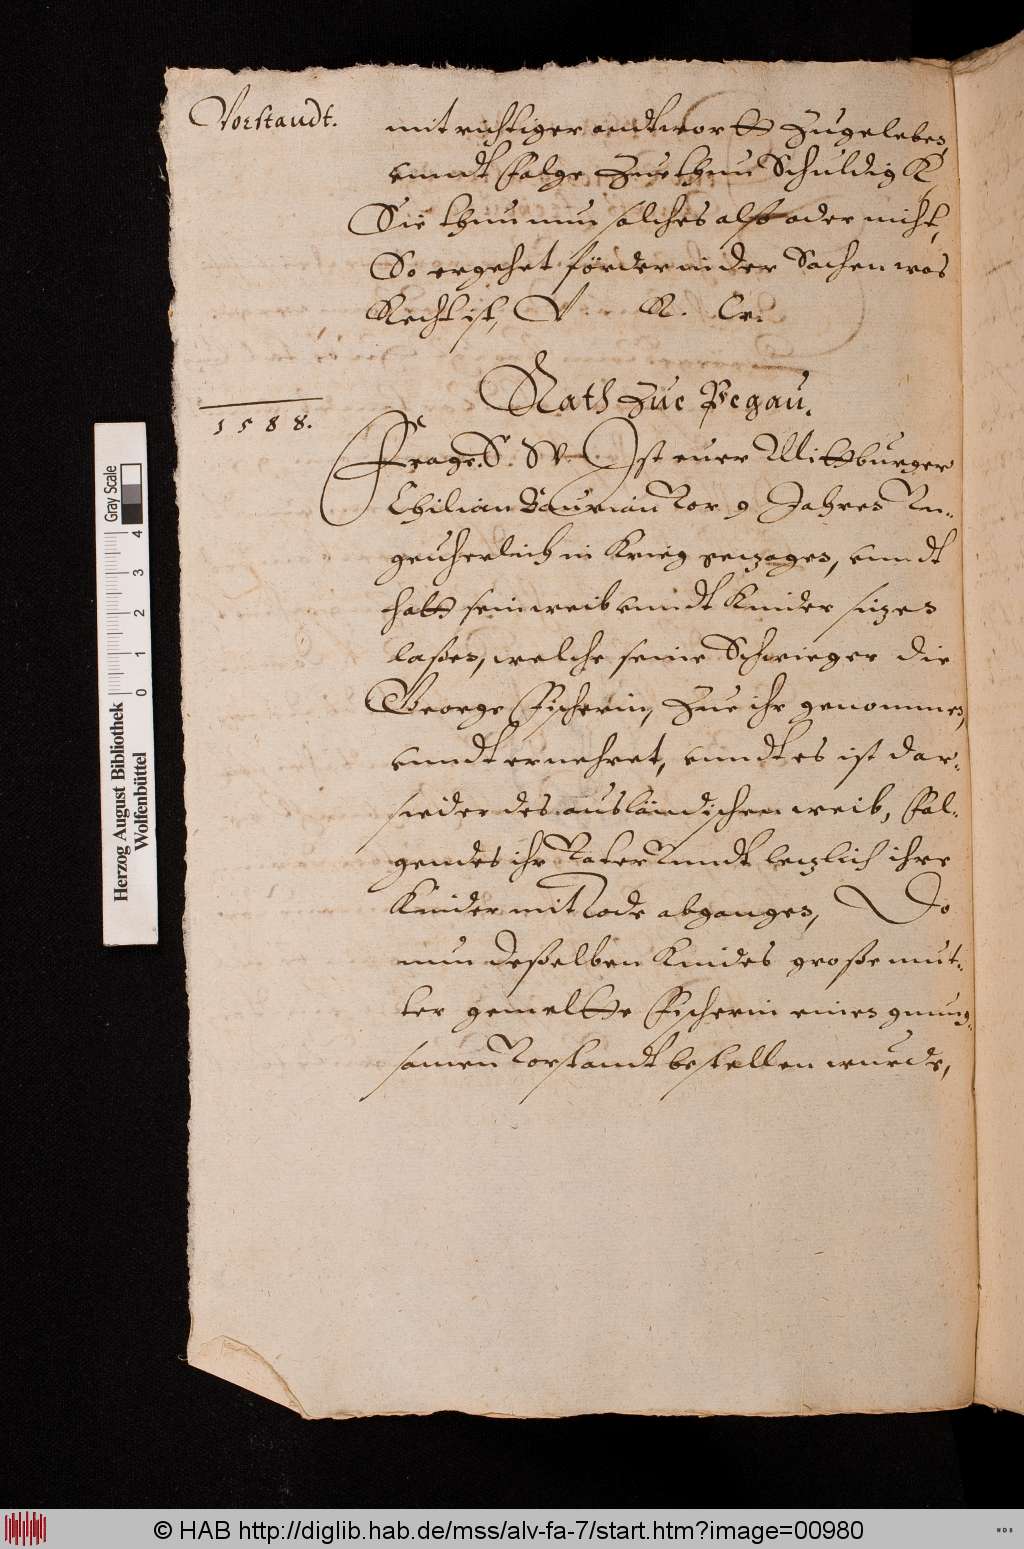 Vorstandt.
mit richtiger andtwortt zugeleben,
vnndt folge zue thun Schuldig
Sie thun nun solches alß oder nicht,
So ergehet förder in der Sachen was
Recht ist, V. R. W.
Rath zue Pegau.
1588.
Frage. S. W. Ist euer Mittburger
Chilian Baurian Vor 9 Jahren Un-
geuherlich in Krieg gezogen, vnndt
hatt sein weib vnndt Kinder sitzen
laßen, welche seine Schwieger die
George Fischerin, zue ihr genommen,
vnndt ernehret, vnndt es ist dar-
sieder des ausländischen weib, Fol-
gendes ihr Vater Vnndt letzlich ihre
Kinder mit Tode abgangen, Do
nun deßelben Kindes große mut-
ter gemeltte Fischerin einen gnung-
samen Vorstandt bestellen wurde,
Gray Scale
0 1 2 3 4
Herzog August Bibliothek
Wolfenbüttel
© HAB http://diglib.hab.de/mss/alv-fa-7/start.htm?image=00980